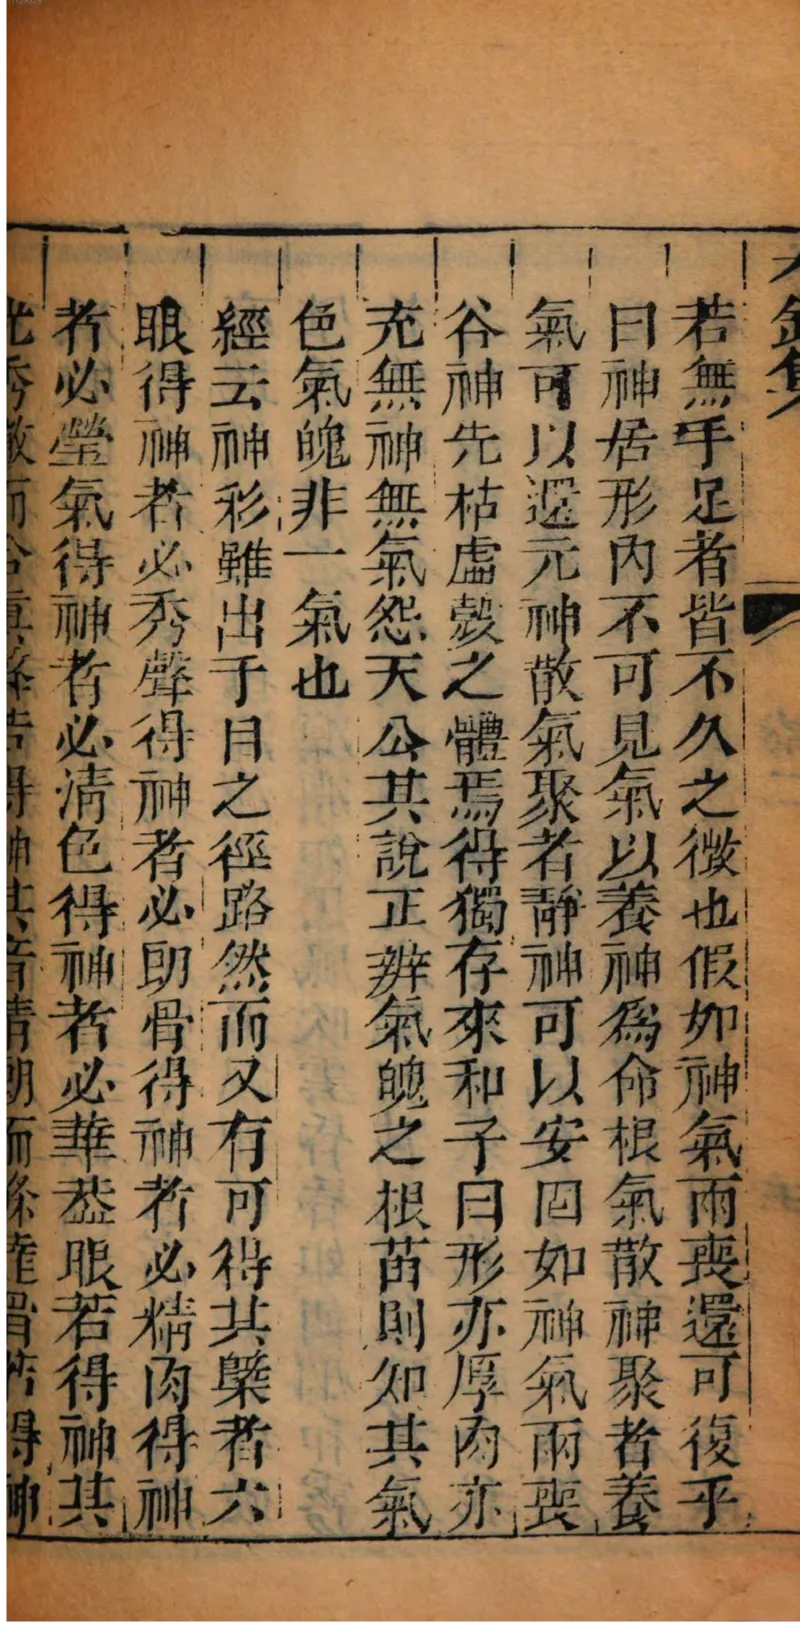 若無手足者皆不久之徵也假如神氣雨喪還可復乎
曰神居形內不可見氣以養神爲命根氣散神聚者養
氣可以還元神散氣聚者靜神可以安固如神氣雨喪
谷神先枯虛殼之體焉得獨存來和子曰形亦厚肉亦
充無神無氣怨天公其說正辨氣魄之根苗則知其氣
色氣魄非一氣也
經云神彩雖出于目之徑路然而又有可得其槩者六
眼得神者必秀聲得神者必朗骨得神者必精肉得神
者必瑩氣得神者必清色得神者必華葢眼若得神其
光秀徹而含真聲若得神其音清朗而條達骨若得神